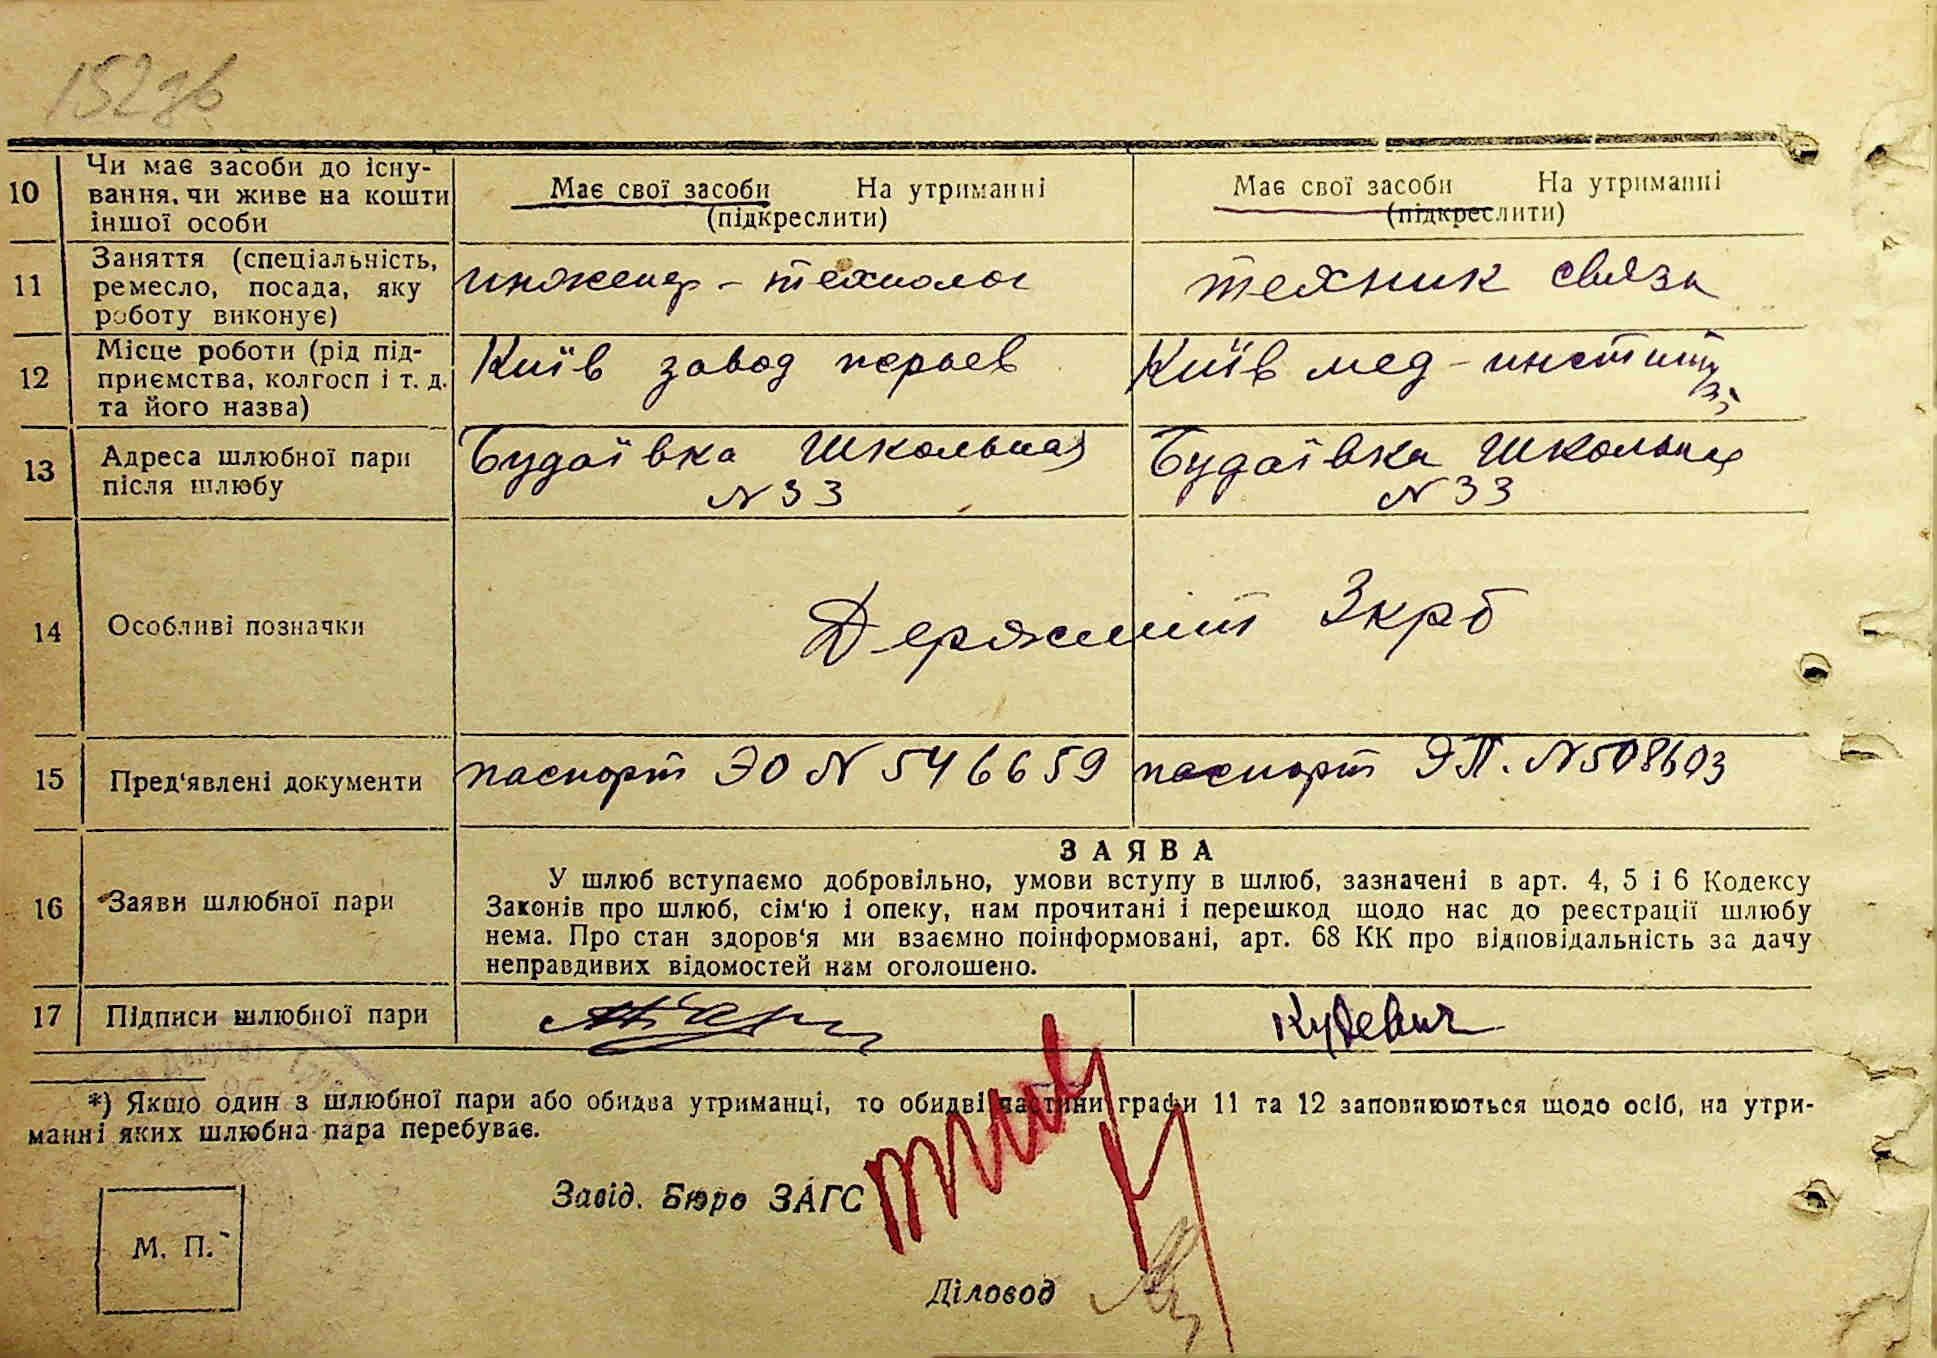 152зв
10 Чи має засоби до існу-
вання, чи живе на кошти
іншої особи
Має свої засоби На утриманні
(підкреслити)
Має свої засоби На утриманні
(підкреслити)
11 Заняття (спеціальність,
ремесло, посада, яку
роботу виконує)
инженер - технолог
техник связи
12 Місце роботи (рід під-
приємства, колгосп і т. д.
та його назва)
Київ завод перьев
Київ мед-институт
13 Адреса шлюбної пари
після шлюбу
Будаївка Школьная
N 33
Будаївка Школьная
N 33
14 Особливі позначки
Держмит 3 крб
15 Пред'явлені документи
паспорт ЭО N 546659
паспорт ЭП. N 508603
16 Заяви шлюбної пари
ЗАЯВА
У шлюб вступаємо добровільно, умови вступу в шлюб, зазначені в арт. 4, 5 і 6 Кодексу
Законів про шлюб, сім'ю і опеку, нам прочитані і перешкод щодо нас до реєстрації шлюбу
нема. Про стан здоров'я ми взаємно поінформовані, арт. 68 КК про відповідальність за дачу
неправдивих відомостей нам оголошено.
17 Підписи шлюбної пари
*) Якщо один з шлюбної пари або обидва утриманці, то обидві частини графи 11 та 12 заповнюються щодо осіб, на утри-
манні яких шлюбна пара перебуває.
Завід. Бюро ЗАГС
М. П.
Діловод